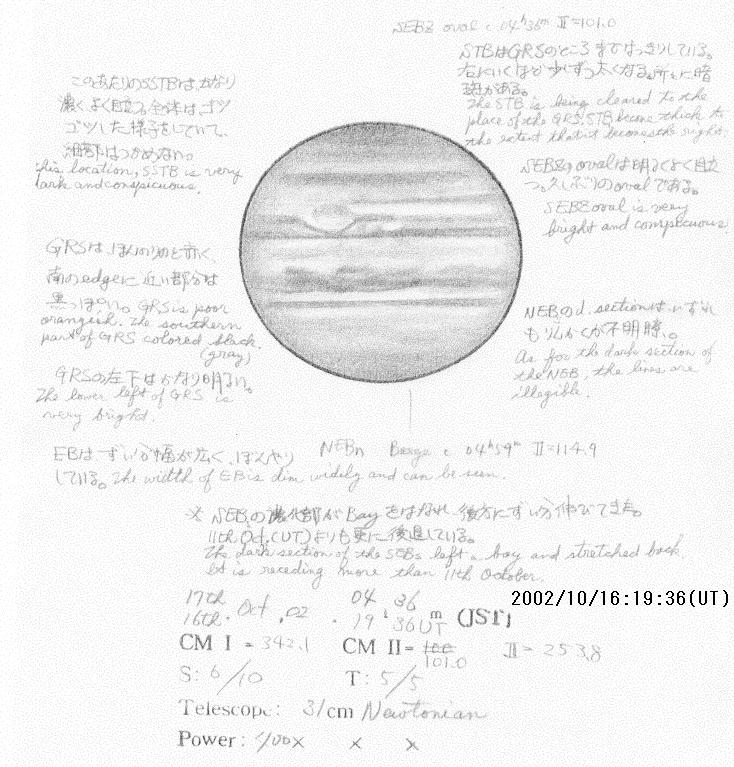 SEBZ oval c 04h36m II=101.0
STBはGRSのところまではっきりしている。
右にいくほど少しずつ太くなる。所々に暗
斑がある。
The STB is being cleared to the
place of the GRS. STB become thick to
the extent that it becomes the right.
このあたりのSSTBは、かなり
濃くよく目立つ。全体は、ゴツ
ゴツした様子をしていて、
はつかめない。
this location, SSTB is very
dark and conspicuous.
SEBZのovalは明るくよく目立
つ。久しぶりのovalである。
SEBZ oval is very
bright and conspicuous.
GRSは、ほんのりと赤く、
南のedgeに近い部分は
黒っぽい。GRS is poor
orangish. The southern
part of GRS colored black.
(gray)
GRSの左下はかなり明るい。
The lower left of GRS is
very bright.
NEBのd. sectionは、いずれ
もりんかくが不明瞭。
As for the dark section of
the NEB, the lines are
illegible.
EBはずいぶん幅が広く、ぼんやり
している。The width of EB is dim widely and can be seen.
NEBn Barge c 04h59m II=114.9
※ SEBsの濃化部がBayをはなれ、後方にずいぶん伸びてきた。
11th Oct.(UT)よりも更に後退している。
The dark section of the SEBs left a bay and stretched back.
It is receding more than 11th October.
17th 04 36
16th. Oct. 02. 19h 36 m UT (JST)
2002/10/16:19:36(UT)
CM I = 342.1 CM II= 101.0 III = 253.8
S: 6/10 T: 5/5
Telescope: 31cm Newtonian
Power: 400x x x